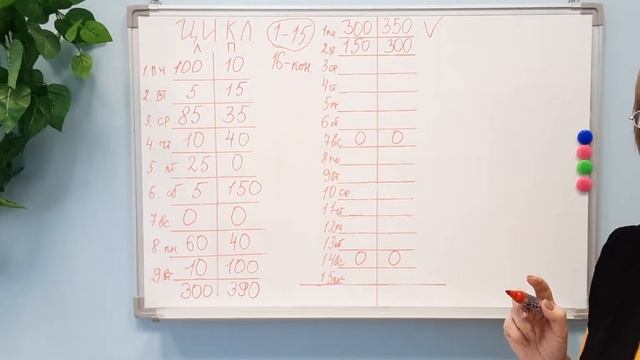 ЦИКЛ
Л П
1. пч 100 10
2. вт 5 15
3. ср 85 35
4. чт 10 40
5. пт 25 0
6. сб 5 150
7 вс 0 0
8 пн 60 40
9. вт 10 100
300 390
1-15
16-кон.
1 пн 300 350 ✓
2 вт 150 300
3 ср
4 чт
5 пт
6 сб
7 вс 0 0
8 пн
9 вт
10 ср
11 чт
12 пт
13 сб
14 вс 0 0
15 пн